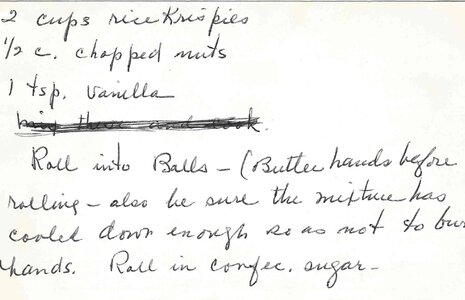 2 cups rice Krispies
1/2 c. chopped nuts
1 tsp. vanilla
Roll into Balls - (Butter hands before
rolling - also be sure the mixture has
cooled down enough so as not to bur
hands. Roll in confec. sugar -